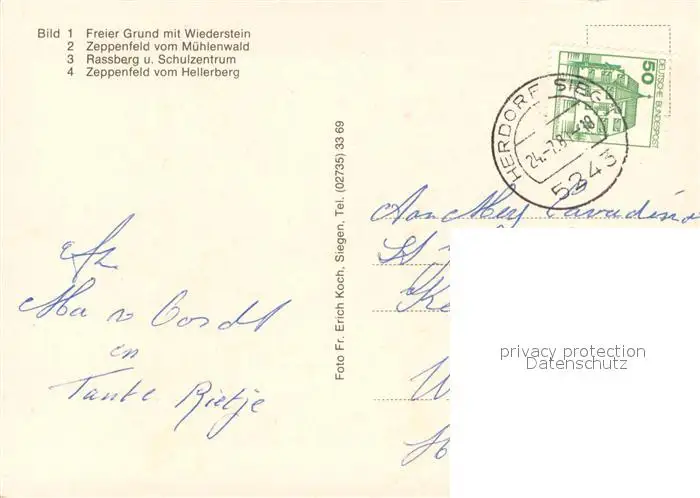 Bild 1 Freier Grund mit Wiederstein
2 Zeppenfeld vom Mühlenwald
3 Rassberg u. Schulzentrum
4 Zeppenfeld vom Hellerberg
DEUTSCHE BUNDESPOST
50
HERDORF SIEG
24.-7.81-18
5243
Foto Fr. Erich Koch, Siegen, Tel. (02735) 33 69
Aan Mej
en
Tante Rietje
privacy protection
Datenschutz